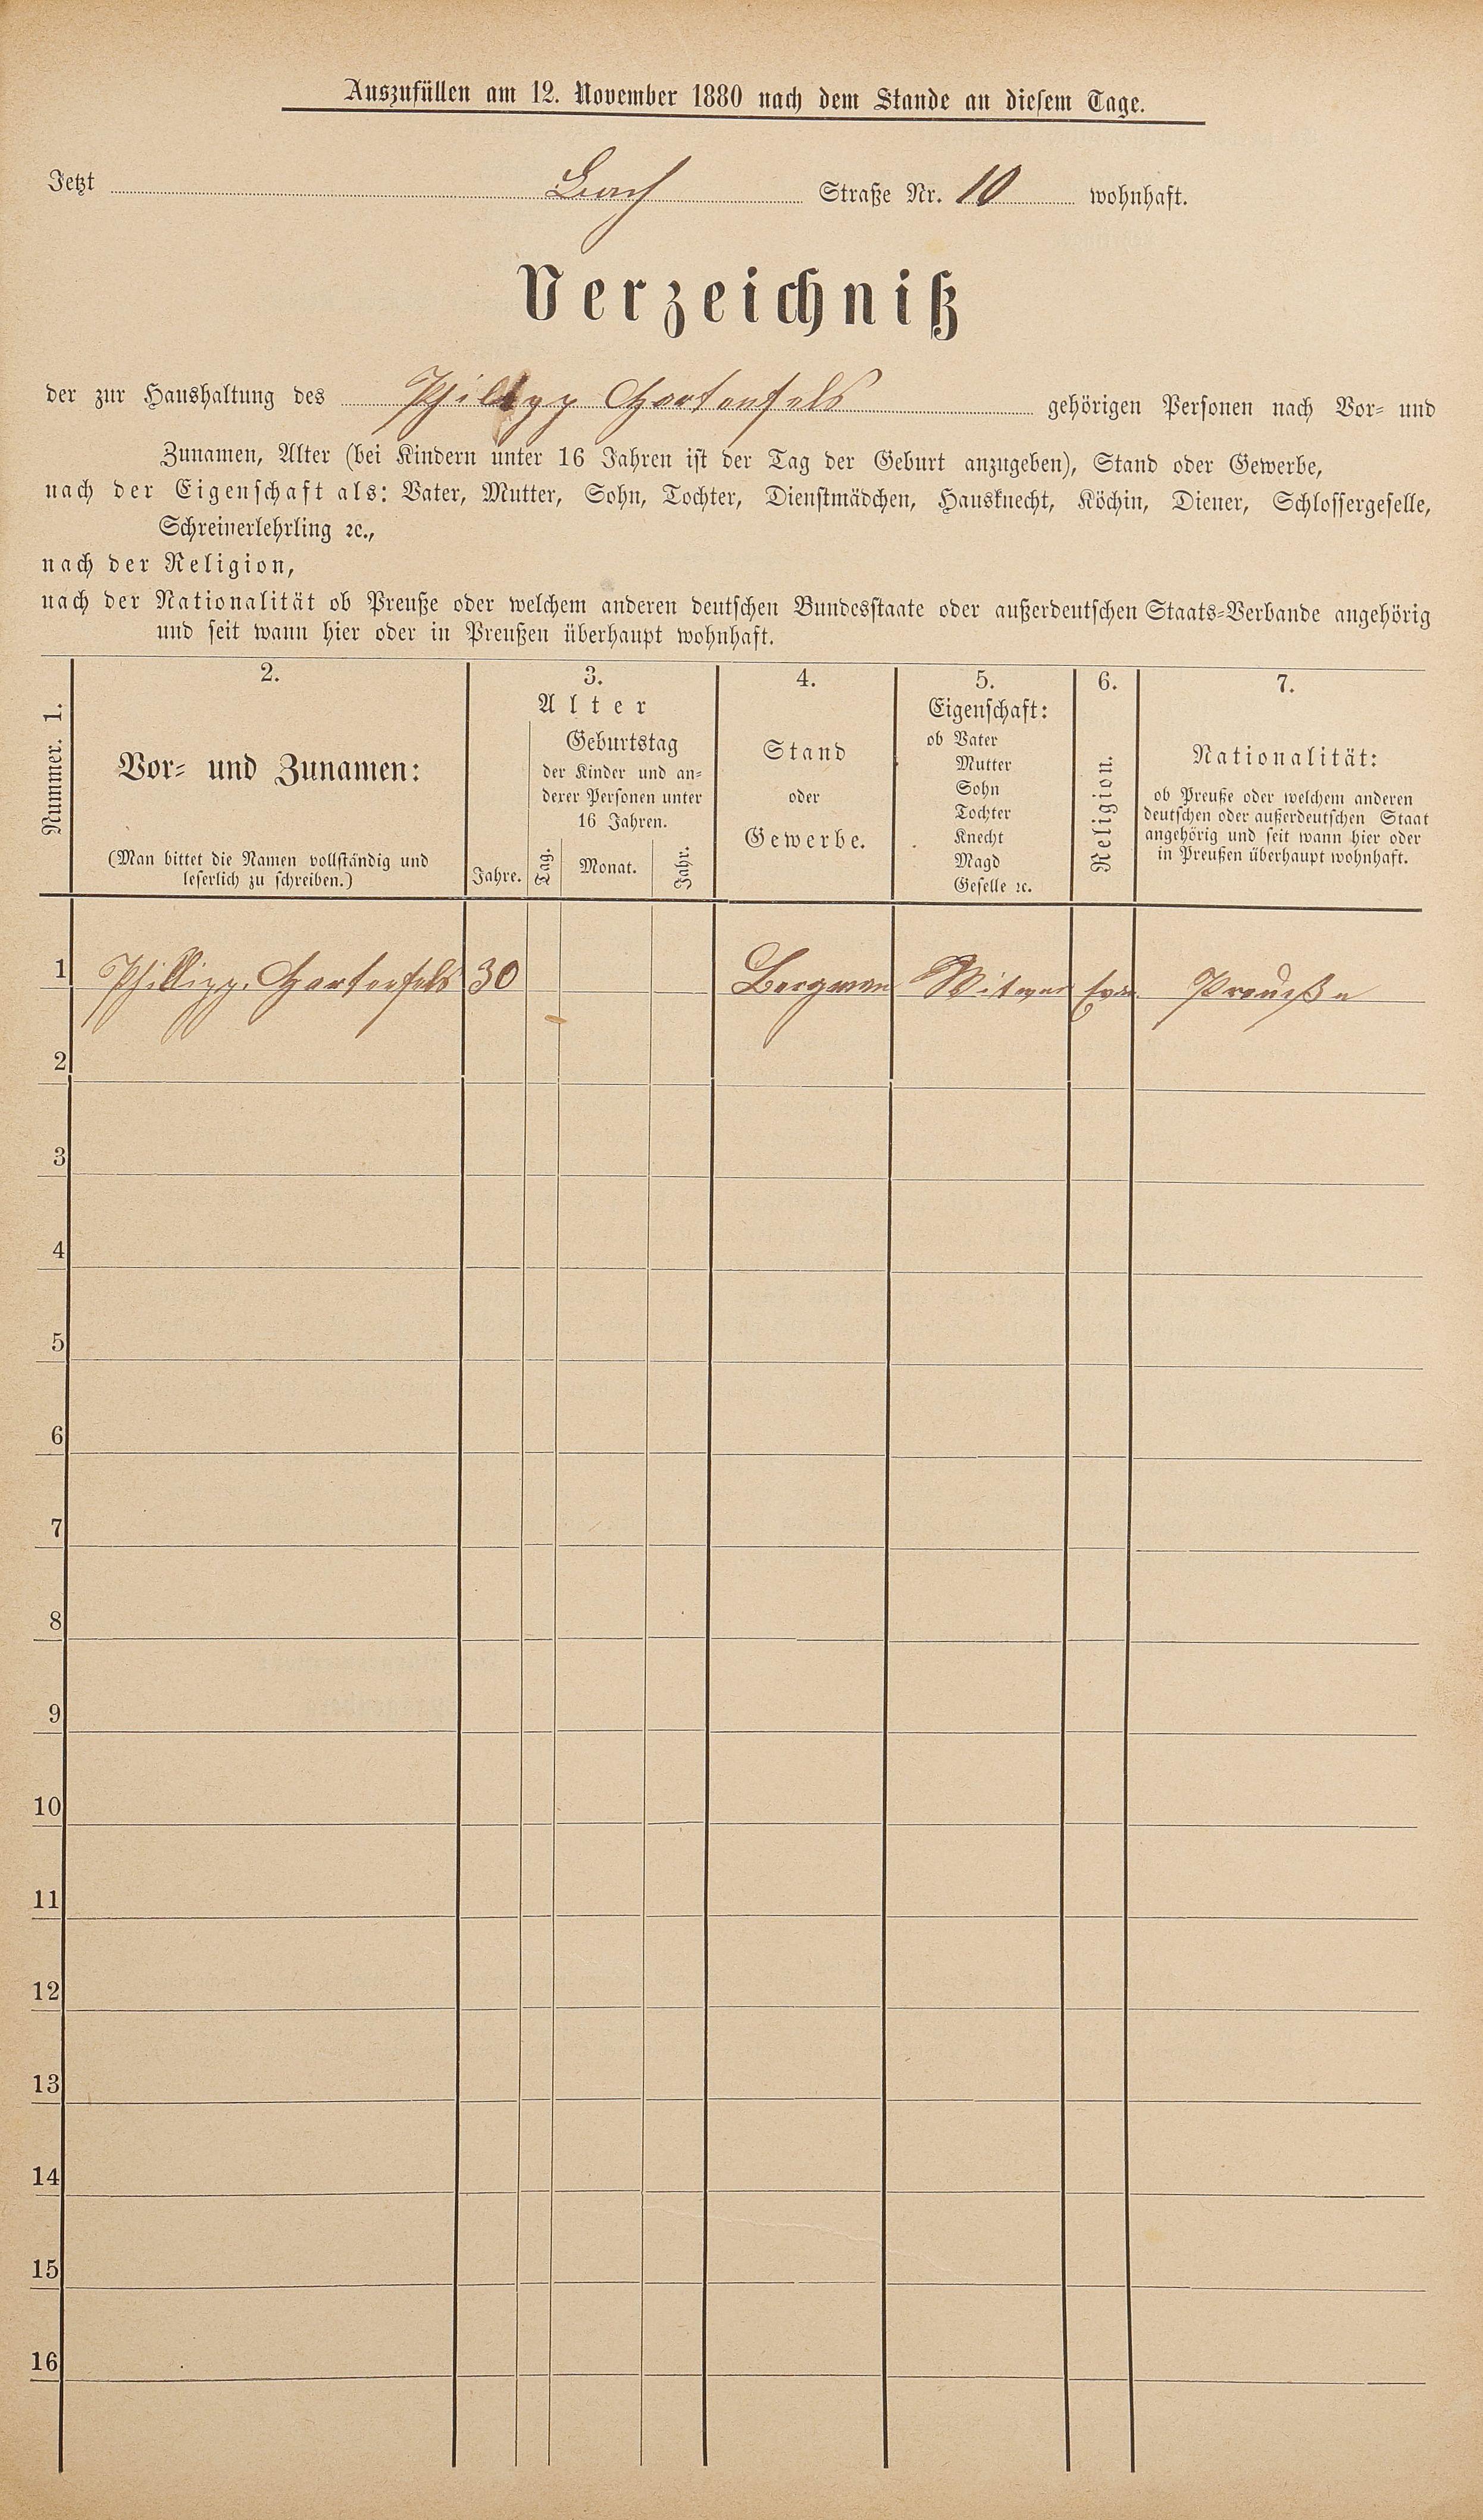 Auszufüllen am 12. November 1880 nach dem Stande an diesem Tage.
Jetzt Bach Straße Nr. 10 wohnhaft.
Verzeichniß
der zur Haushaltung des Phillipp Hartenfels gehörigen Personen nach Vor- und
Zunamen, Alter (bei Kindern unter 16 Jahren ist der Tag der Geburt anzugeben), Stand oder Gewerbe,
nach der Eigenschaft als: Vater, Mutter, Sohn, Tochter, Dienstmädchen, Hausknecht, Köchin, Diener, Schlossergeselle,
Schreinerlehrling ꝛc.,
nach der Religion,
nach der Nationalität ob Preuße oder welchem anderen deutschen Bundesstaate oder außerdeutschen Staats-Verbande angehörig
und seit wann hier oder in Preußen überhaupt wohnhaft.
Nummer. 1.
2.
Vor- und Zunamen:
(Man bittet die Namen vollständig und
leserlich zu schreiben.)
3.
Alter
Jahre.
Geburtstag
der Kinder und an-
derer Personen unter
16 Jahren.
Tag.
Monat.
Jahr.
4.
Stand
oder
Gewerbe.
5.
Eigenschaft:
ob Vater
Mutter
Sohn
Tochter
Knecht
Magd
Geselle ꝛc.
6.
Religion.
7.
Nationalität:
ob Preuße oder welchem anderen
deutschen oder außerdeutschen Staat
angehörig und seit wann hier oder
in Preußen überhaupt wohnhaft.
1 Phillipp. Hartenfels 30 Bergman Witwer Preuße
2
3
4
5
6
7
8
9
10
11
12
13
14
15
16